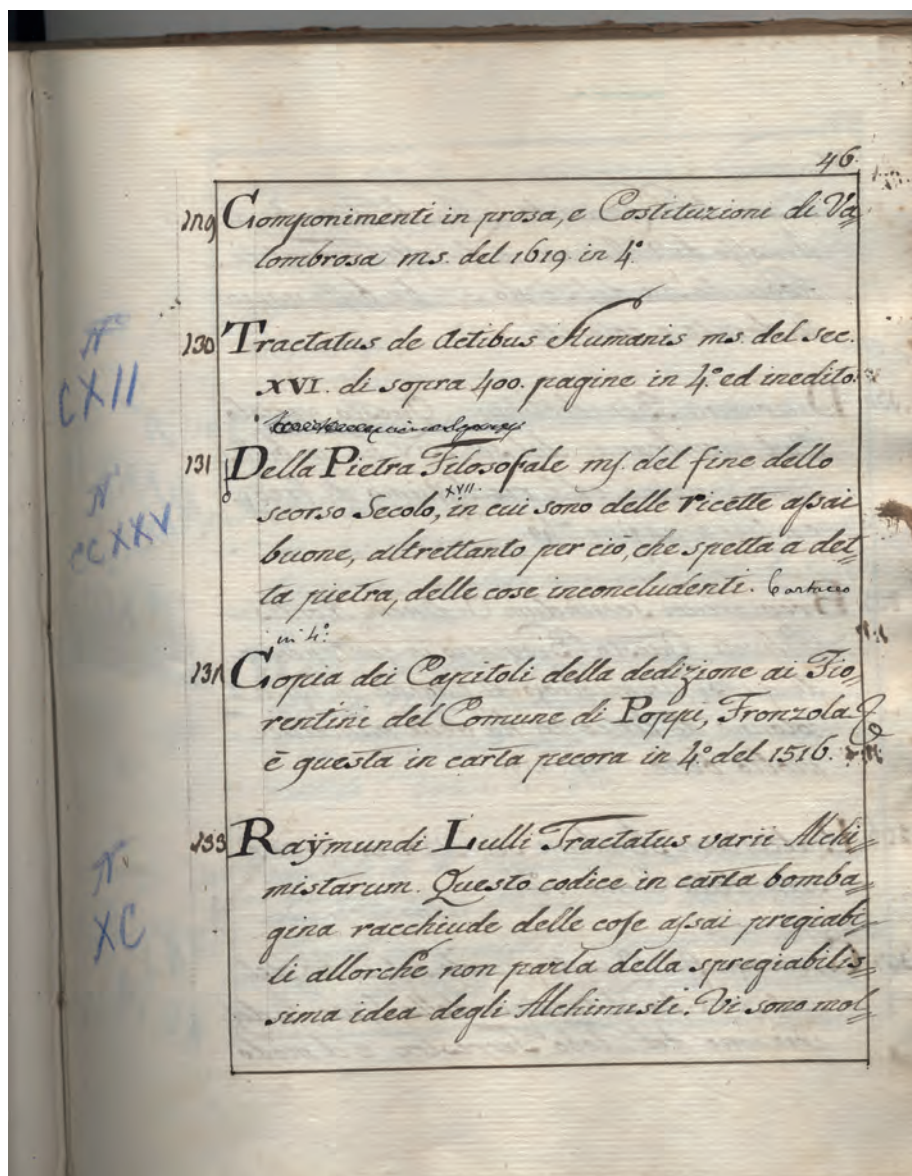 46.
129 Componimenti in prosa, e Costituzioni di Va=
lombrosa ms. del 1619. in 4.°
N°
CXII
130 Tractatus de Actibus Humanis ms. del sec.
XVI. di sopra 400. pagine in 4.° ed inedito.
N°
CCXXV
131 Della Pietra Filosofale ms. del fine dello
scorso Secolo, XVII. in cui sono delle ricette assai
buone, altrettanto per ciò, che spetta a det=
ta pietra, delle cose inconcludenti. Cartaceo
in 4.°
132 Copia dei Capitoli della dedizione ai Fio=
rentini del Comune di Poppi, Fronzola.
è questa in carta pecora in 4.° del 1516.
N°
XC
133 Raÿmundi Lulli Tractatus varii Alchi=
mistarum. Questo codice in carta bomba=
gina racchiude delle cose assai pregiabi=
li allorchè non parla della spregiabilis=
sima idea degli Alchimisti. Vi sono mol=